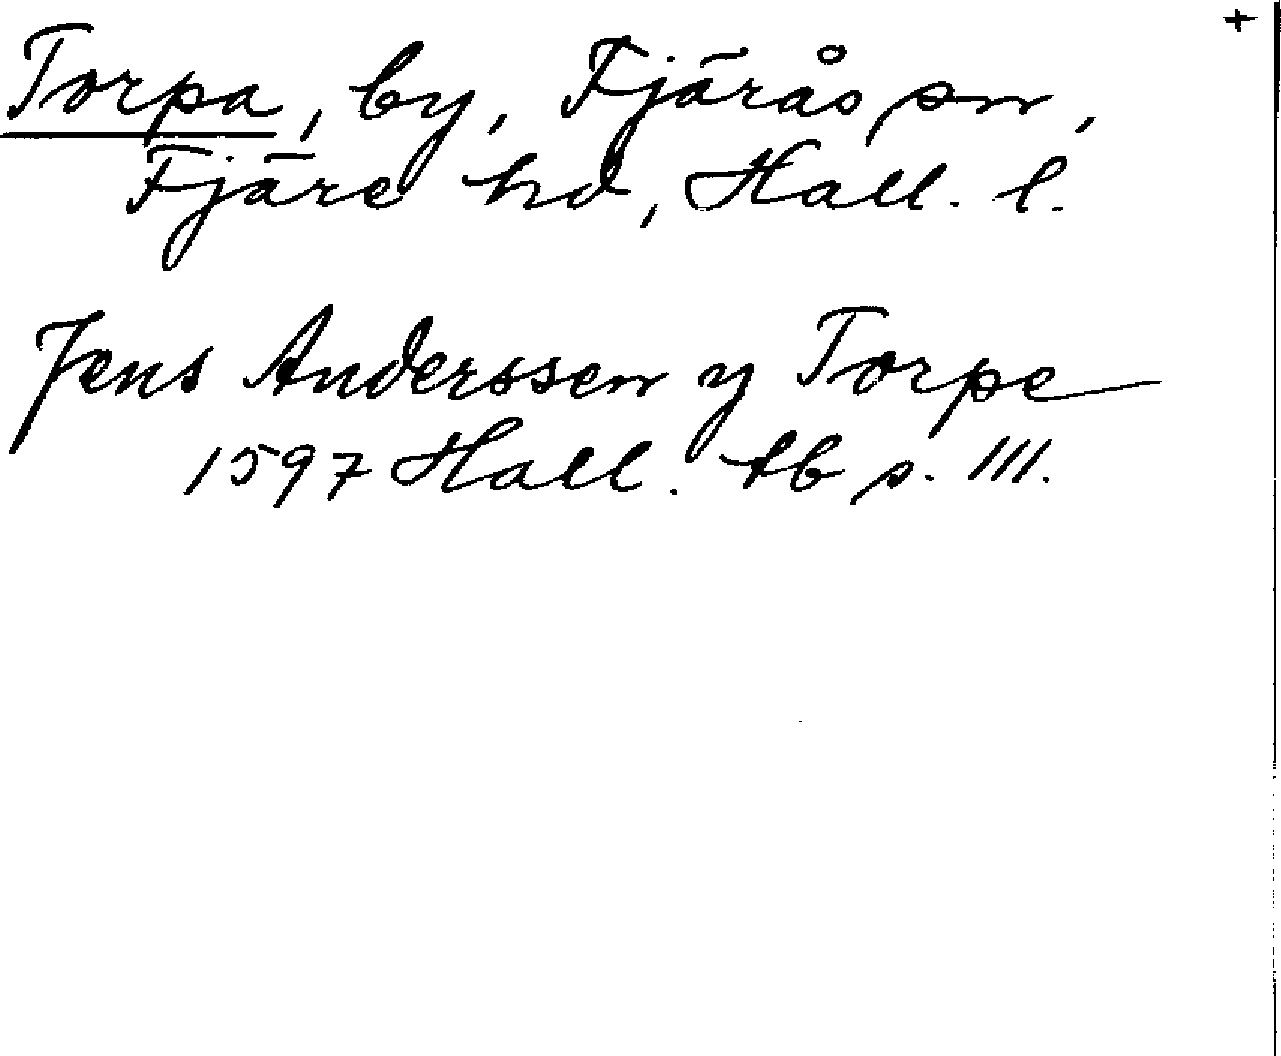 +
Torpa, by, Fjärås sn,
Fjäre hd, Hall. l.
Jens Anderssen y Torpe
1597 Hall. tb s. 111.